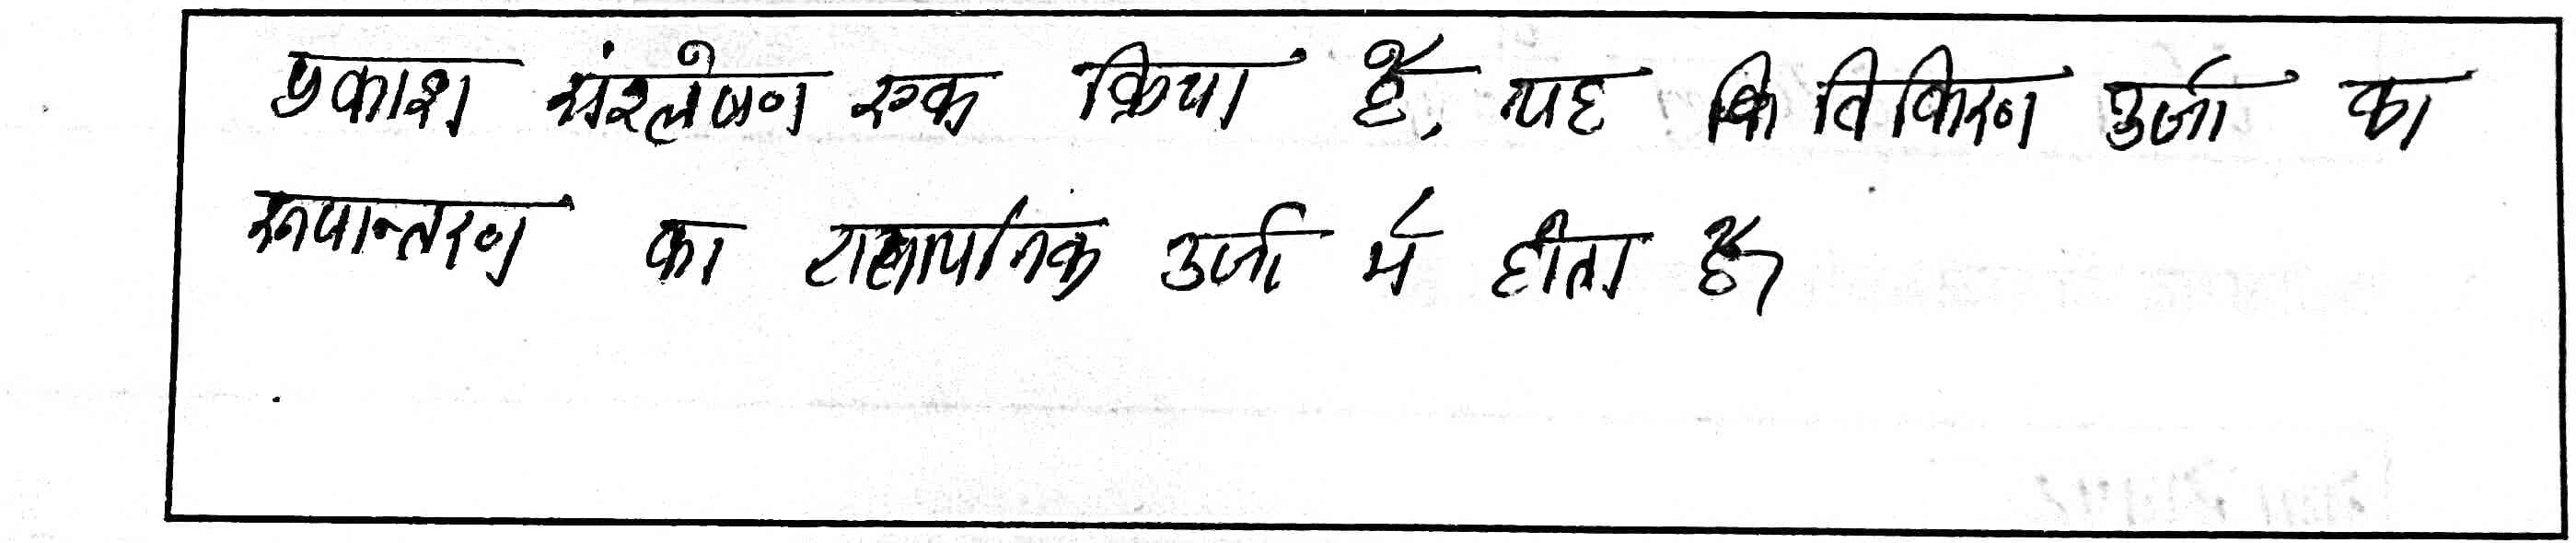 प्रकाश संश्लेषण एक क्रिया है, यह कि विकिरण उर्जा का
रूपान्तरण का रासायनिक उर्जा में होता है